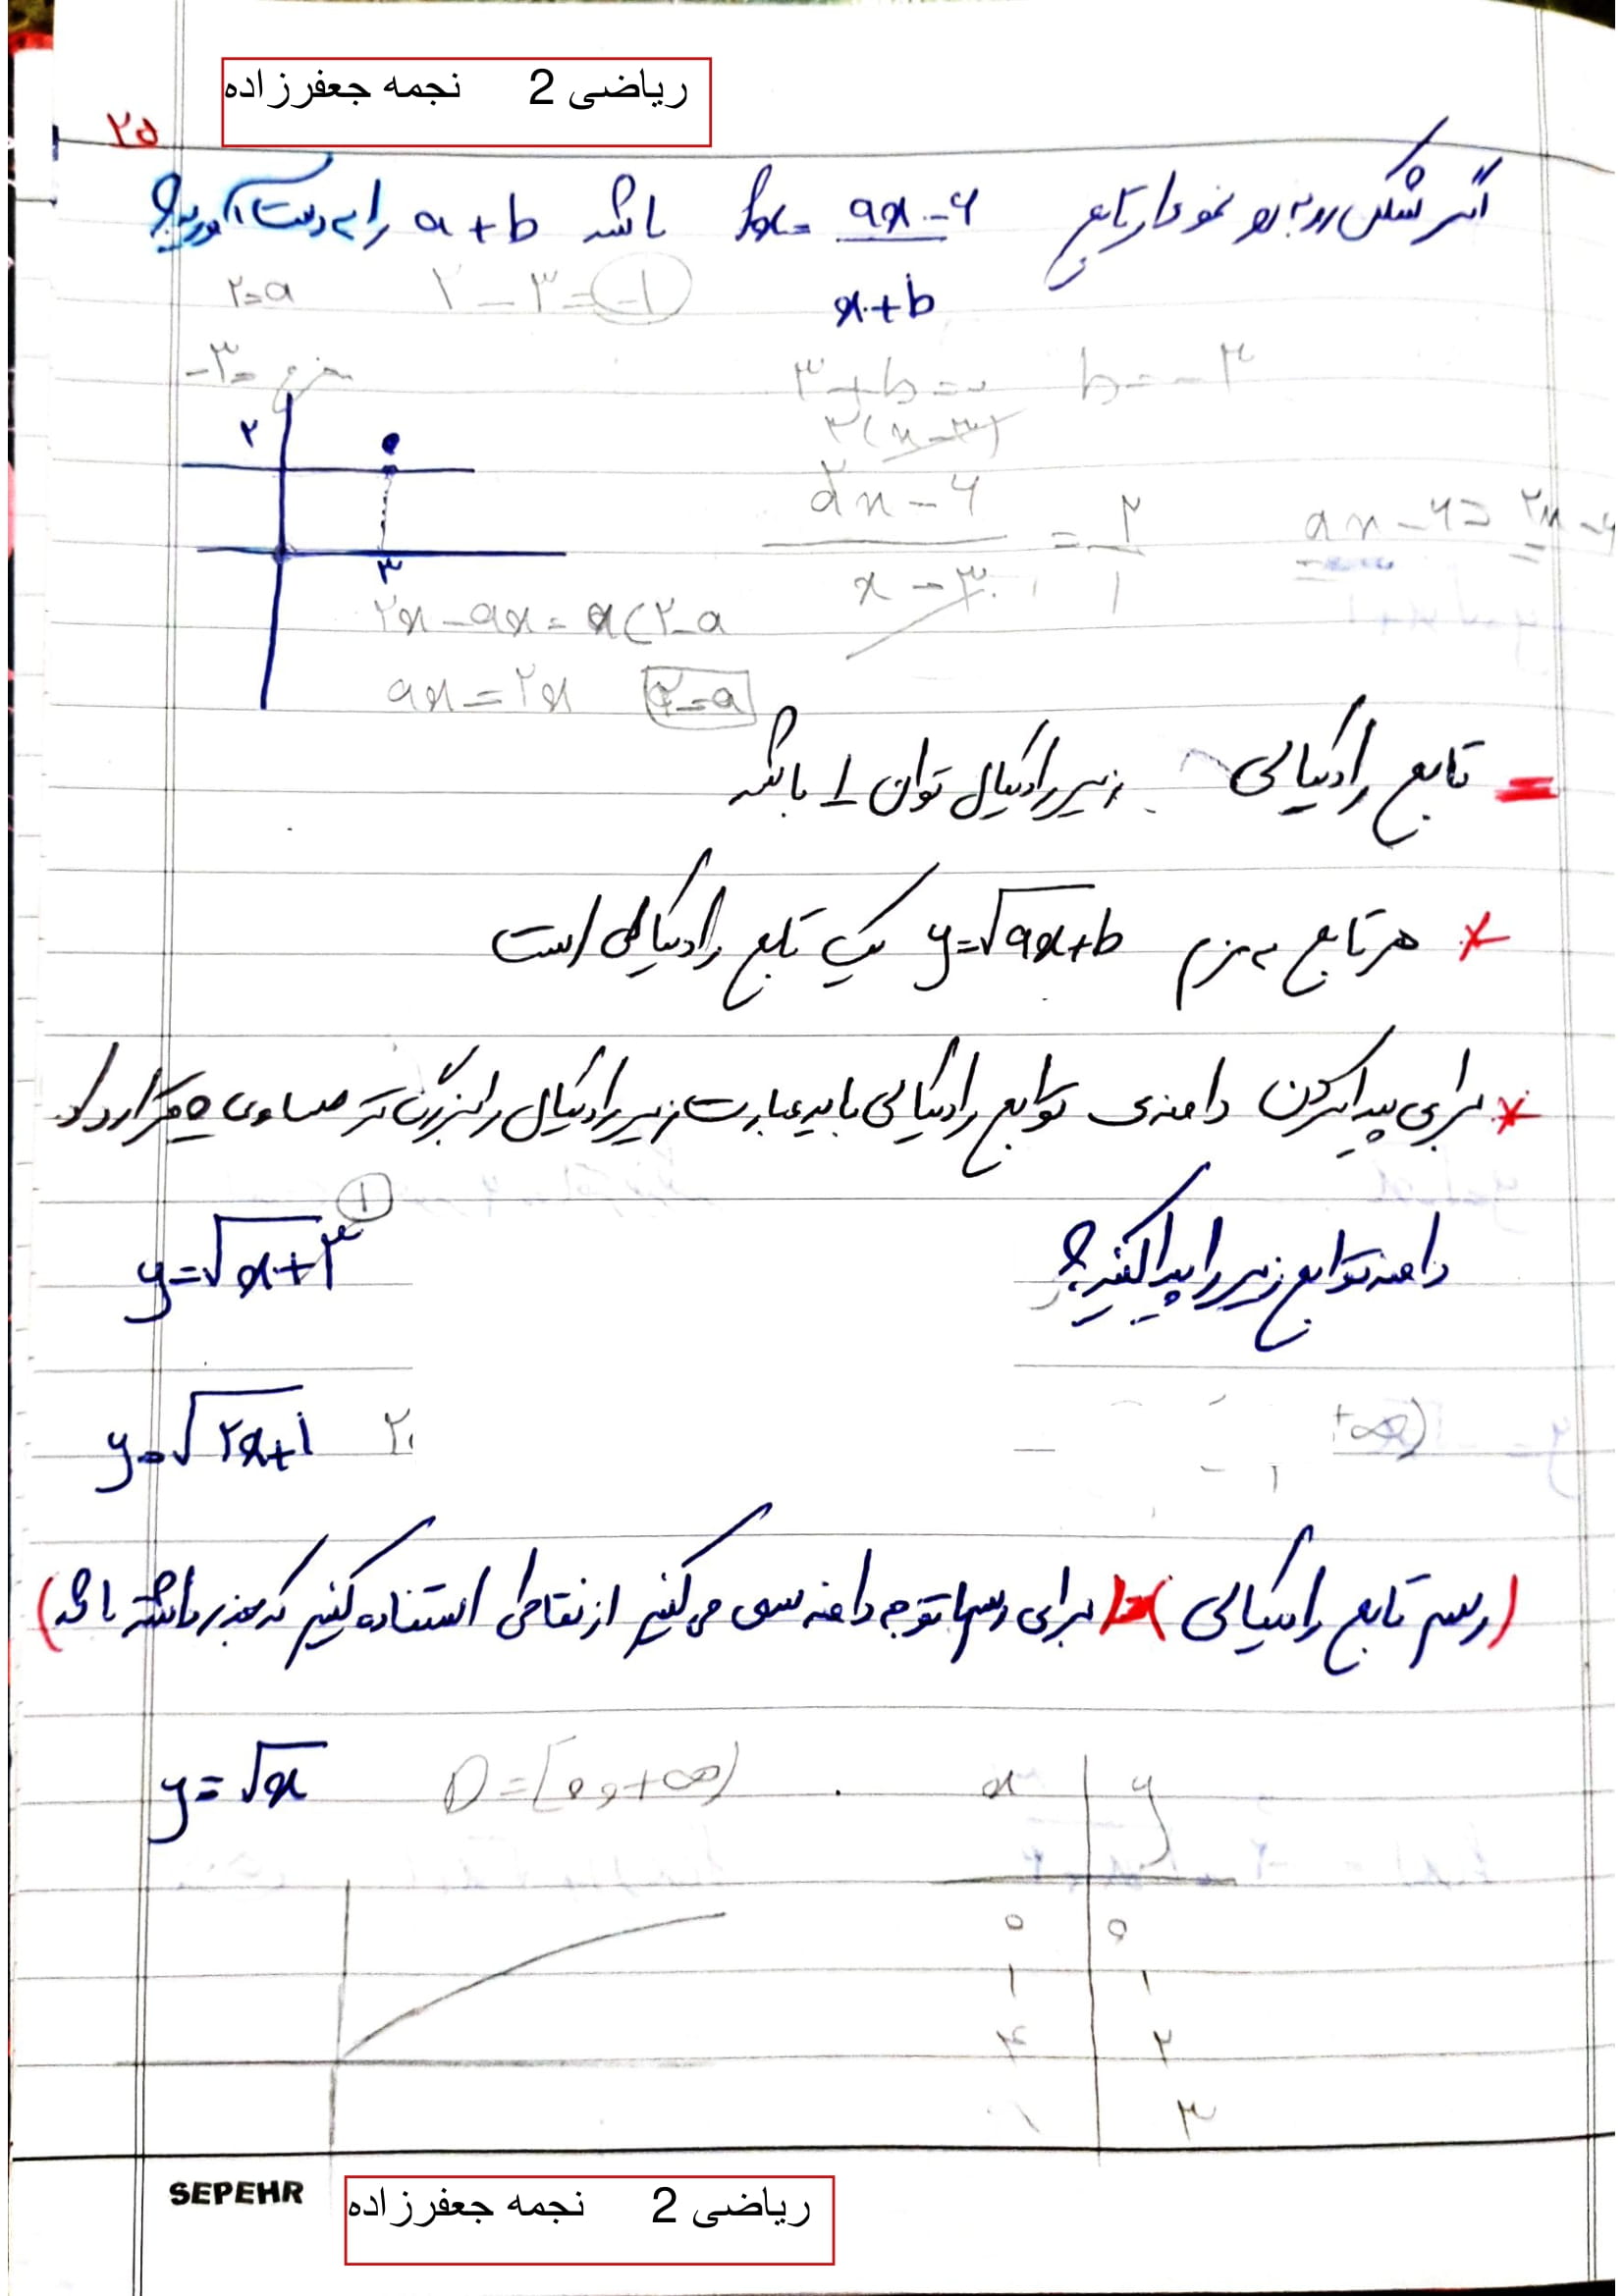 ریاضی 2 نجمه جعفرزاده
۲۵
اگر شکل روبه رو نمودار تابع fx = ax-۶ / x+b باشد a+b را به دست آورید؟
۲=a ۲-۳=-۱
مخرج = ۳-
۳+b=۰ b=-۳
۲(x-۳)
۲
ax-۶ / x-۳ = ۲/۱ ax-۶=۲x-۶
۳
۲x-ax=x(۲-a
ax=۲x ۲=a
= تابع رادیکالی زیر رادیکال توان ۱ باشد
* هر تابع به فرم y=√ax+b یک تابع رادیکالی است
* برای پیدا کردن دامنه‌ی توابع رادیکالی باید عبارت زیر رادیکال را بزرگتر مساوی ۰ قرار داد
دامنه توابع زیر را پیدا کنید؟ y=√x+۳ ①
y=√۲x+۱ ۲ +∞)
(رسم تابع رادیکالی) برای رسم با توجه دامنه سعی می کنیم از نقاطی استفاده کنیم که جذر داشته باشد)
y=√x D=[۰,+∞) x y
۰ ۰
۱ ۱
۴ ۲
۳
SEPEHR
ریاضی 2 نجمه جعفرزاده